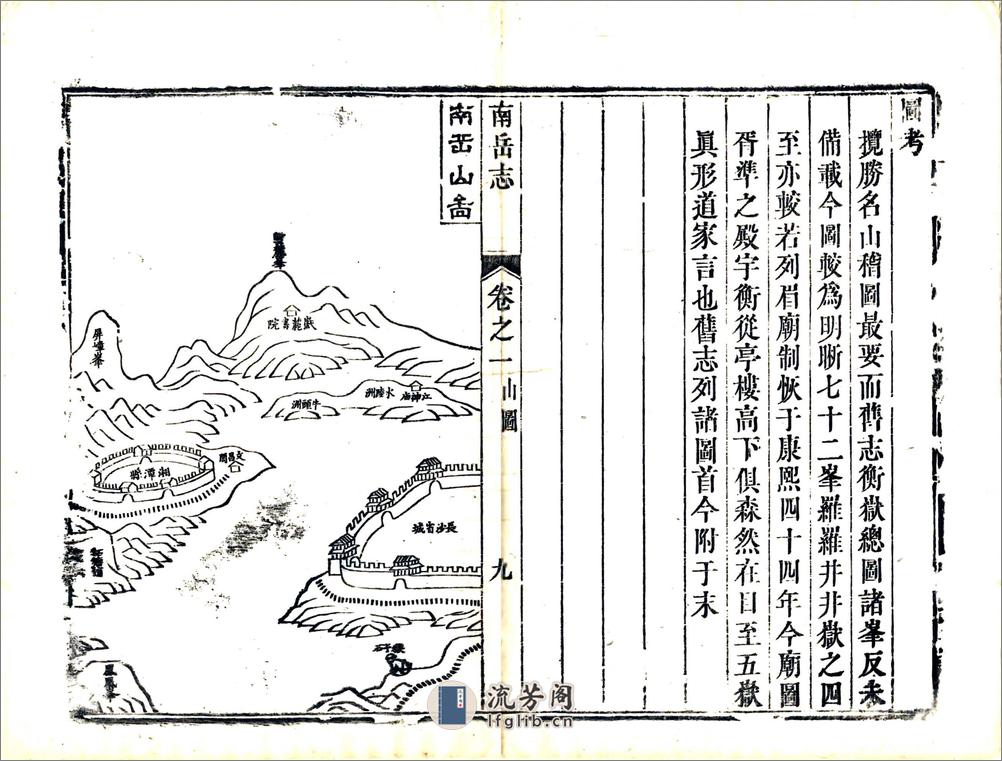 圖考
攬勝名山稽圖最要而舊志衡嶽總圖諸峯反未
備載今圖較爲明晰七十二峯羅羅井井嶽之四
至亦較若列眉廟制恢于康熙四十四年今廟圖
胥準之殿宇衡從亭樓高下俱森然在目至五嶽
眞形道家言也舊志列諸圖首今附于末
南岳志
卷之一
山圖
九
南岳山圖
嶽麓書院
江神庙
水陸洲
牛頭洲
屏嶂峯
文昌閣
湘潭縣
長沙省城
鳳凰峯
流芳阁
lfglib.cn